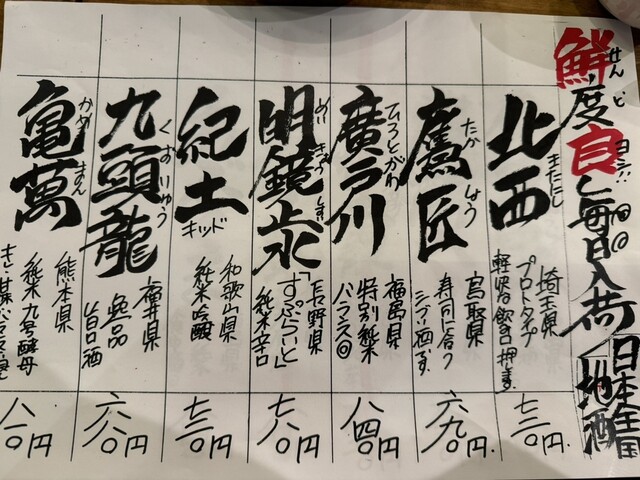 鮮度良し毎日入荷
せんど
ヨシ!!
日本全国
地酒
北西
きたにし
埼玉県
プロトタイプ
軽快な飲口押します
七三〇円.
鷹匠
たかしょう
鳥取県
寿司に合う
シブい酒です.
六九〇円.
廣戸川
ひろとがわ
福島県
特別純米
バランス◎
八四〇円
明鏡止水
めいきょうしすい
長野県
「すぷらいと」
純米辛口
七八〇円
紀土
キッド
和歌山県
純米吟醸
七三〇円
九頭龍
くずりゅう
福井県
逸品
旨口酒
六八〇円
亀萬
かめまん
熊本県
純米九号酵母
八一〇円